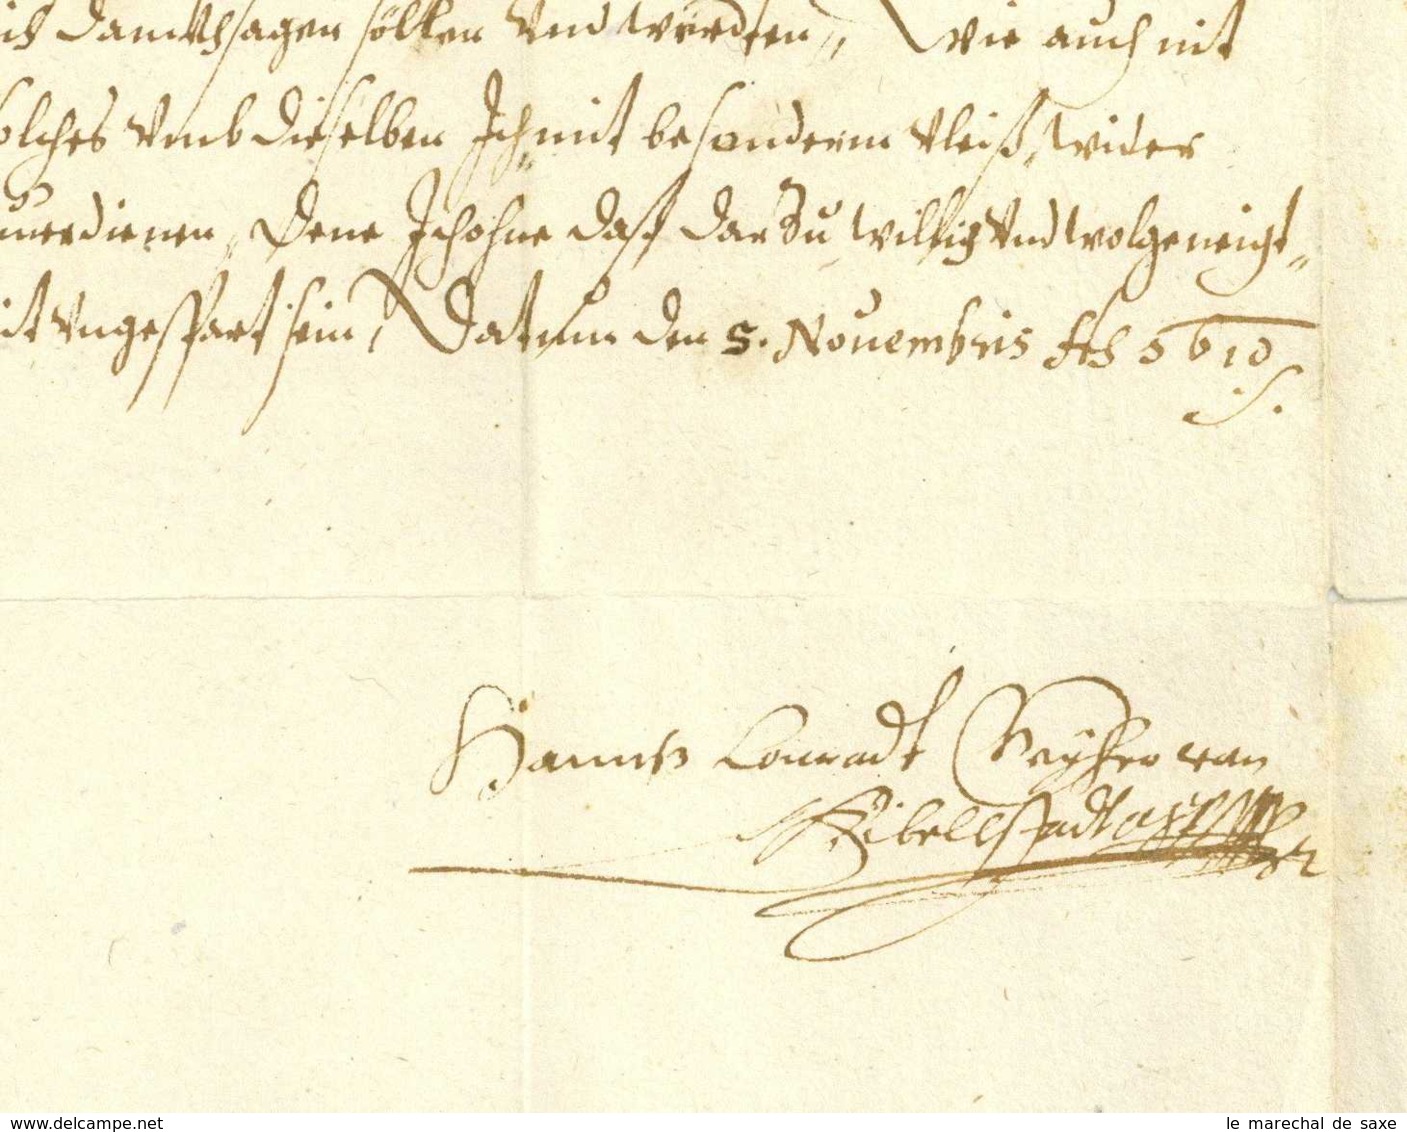 danckhsagen söllen vnd werden, Wie auch mit
solches vmb dieselben Ich mit besonderm vleiß, wider
uerdienen, Dene Ich ohne daß darzu willig vnd wolgeneigt
vngespart sein, Datum den 5. Nouembris
Hannß Conradt von
Gibellstadt
www.delcampe.net
le marechal de saxe